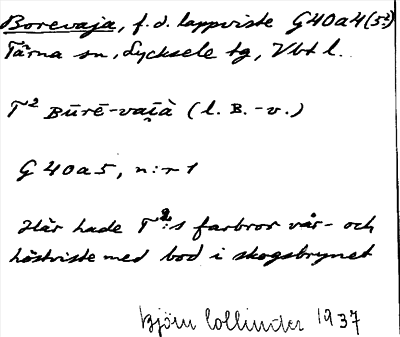 Borevaja, f.d. lappviste G40a4(5?)
Tärna sn, Lycksele tg, Vbt l.
T² Būrē-vaţà (l. B.-v.)
G40a5, n:r 1
Här hade T²:s farbror vår- och
höstviste med bod i skogsbrynet
Björn Collinder 1937